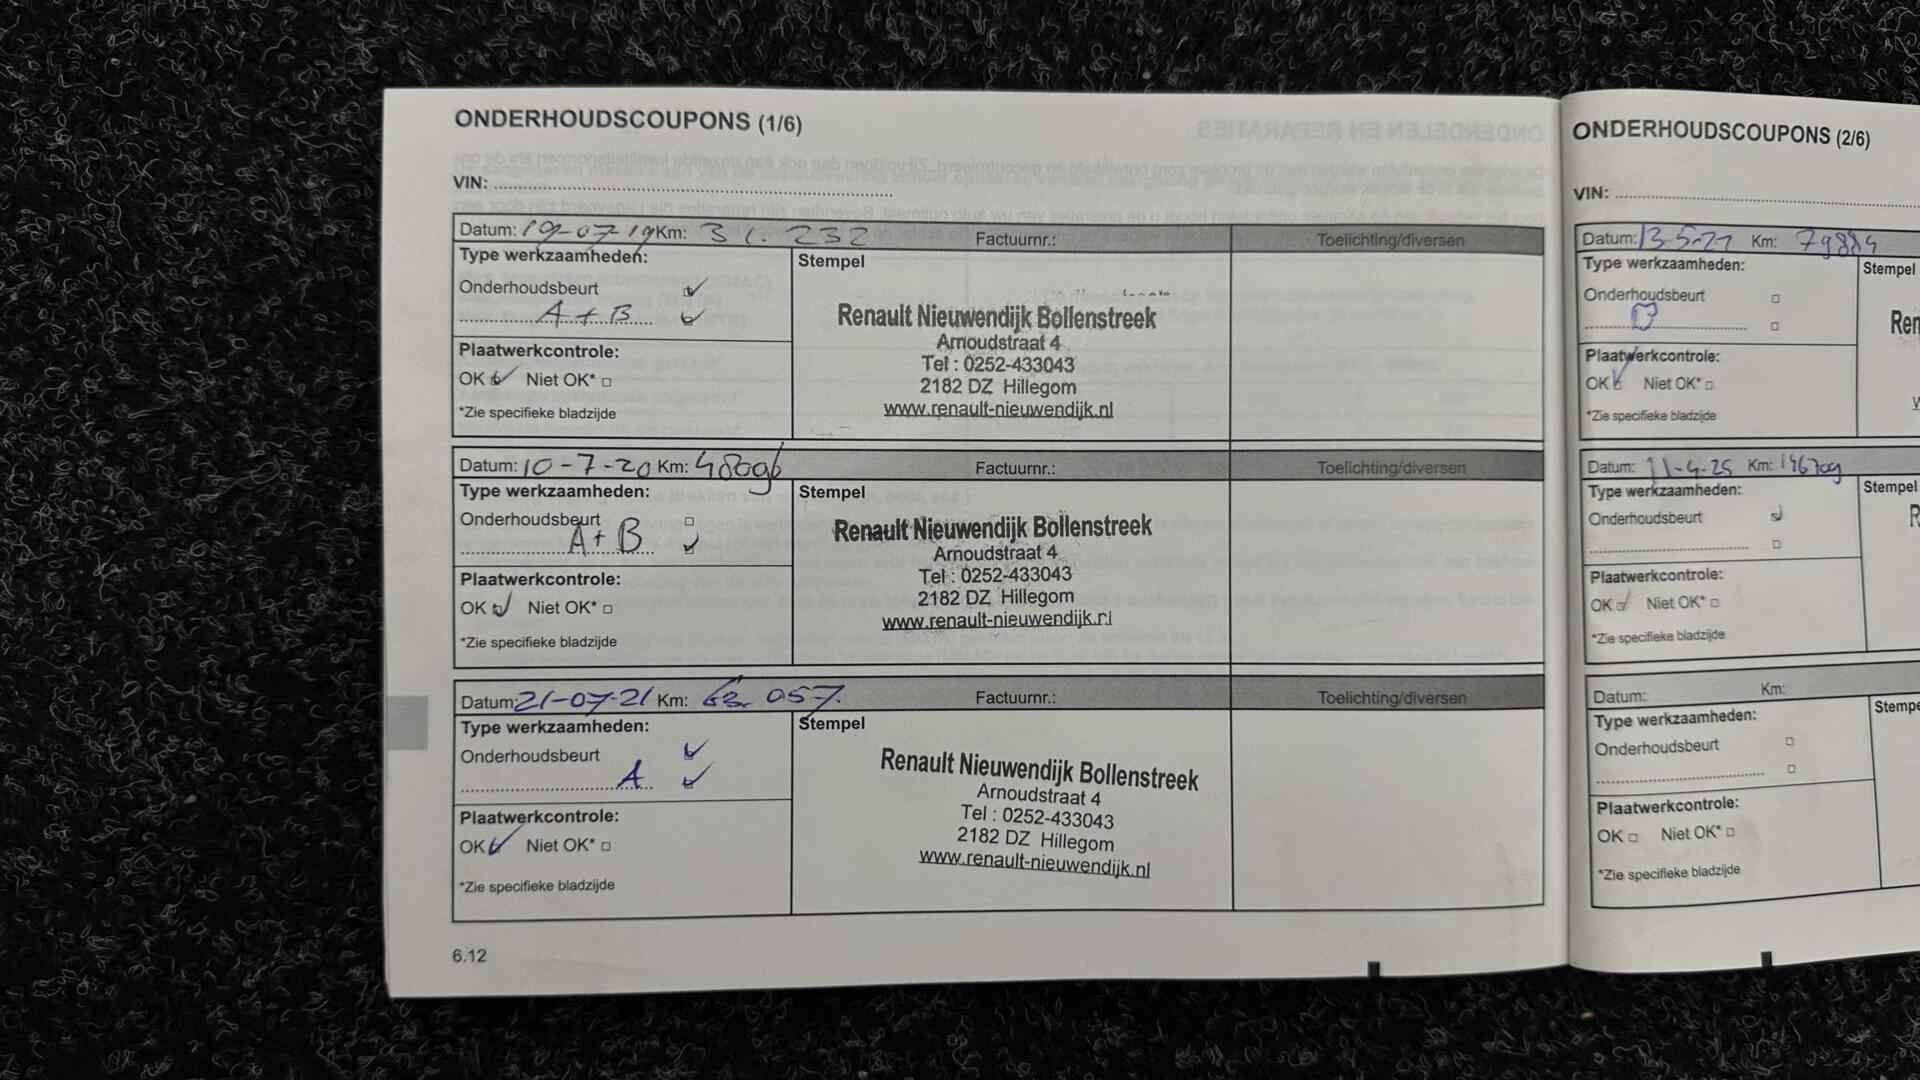 ONDERHOUDSCOUPONS (1/6)
VIN:
Datum: 19-07-19 Km: 31.232 Factuurnr.: Toelichting/diversen
Type werkzaamheden: Stempel
Onderhoudsbeurt
A + B
Plaatwerkcontrole:
OK Niet OK*
*Zie specifieke bladzijde
Renault Nieuwendijk Bollenstreek
Arnoudstraat 4
Tel : 0252-433043
2182 DZ Hillegom
www.renault-nieuwendijk.nl
Datum: 10-7-20 Km: 48096 Factuurnr.: Toelichting/diversen
Type werkzaamheden: Stempel
Onderhoudsbeurt
A + B
Plaatwerkcontrole:
OK Niet OK*
*Zie specifieke bladzijde
Renault Nieuwendijk Bollenstreek
Arnoudstraat 4
Tel : 0252-433043
2182 DZ Hillegom
www.renault-nieuwendijk.nl
Datum: 21-07-21 Km: 63.057. Factuurnr.: Toelichting/diversen
Type werkzaamheden: Stempel
Onderhoudsbeurt
A
Plaatwerkcontrole:
OK Niet OK*
*Zie specifieke bladzijde
Renault Nieuwendijk Bollenstreek
Arnoudstraat 4
Tel : 0252-433043
2182 DZ Hillegom
www.renault-nieuwendijk.nl
6.12
ONDERHOUDSCOUPONS (2/6)
VIN:
Datum: Km:
Type werkzaamheden: Stempel
Onderhoudsbeurt
Ren
Plaatwerkcontrole:
OK Niet OK*
*Zie specifieke bladzijde
Datum: 11-4-25 Km: 146709
Type werkzaamheden: Stempel
Onderhoudsbeurt
Plaatwerkcontrole:
OK Niet OK*
*Zie specifieke bladzijde
Datum: Km:
Type werkzaamheden: Stempe
Onderhoudsbeurt
Plaatwerkcontrole:
OK Niet OK*
*Zie specifieke bladzijde